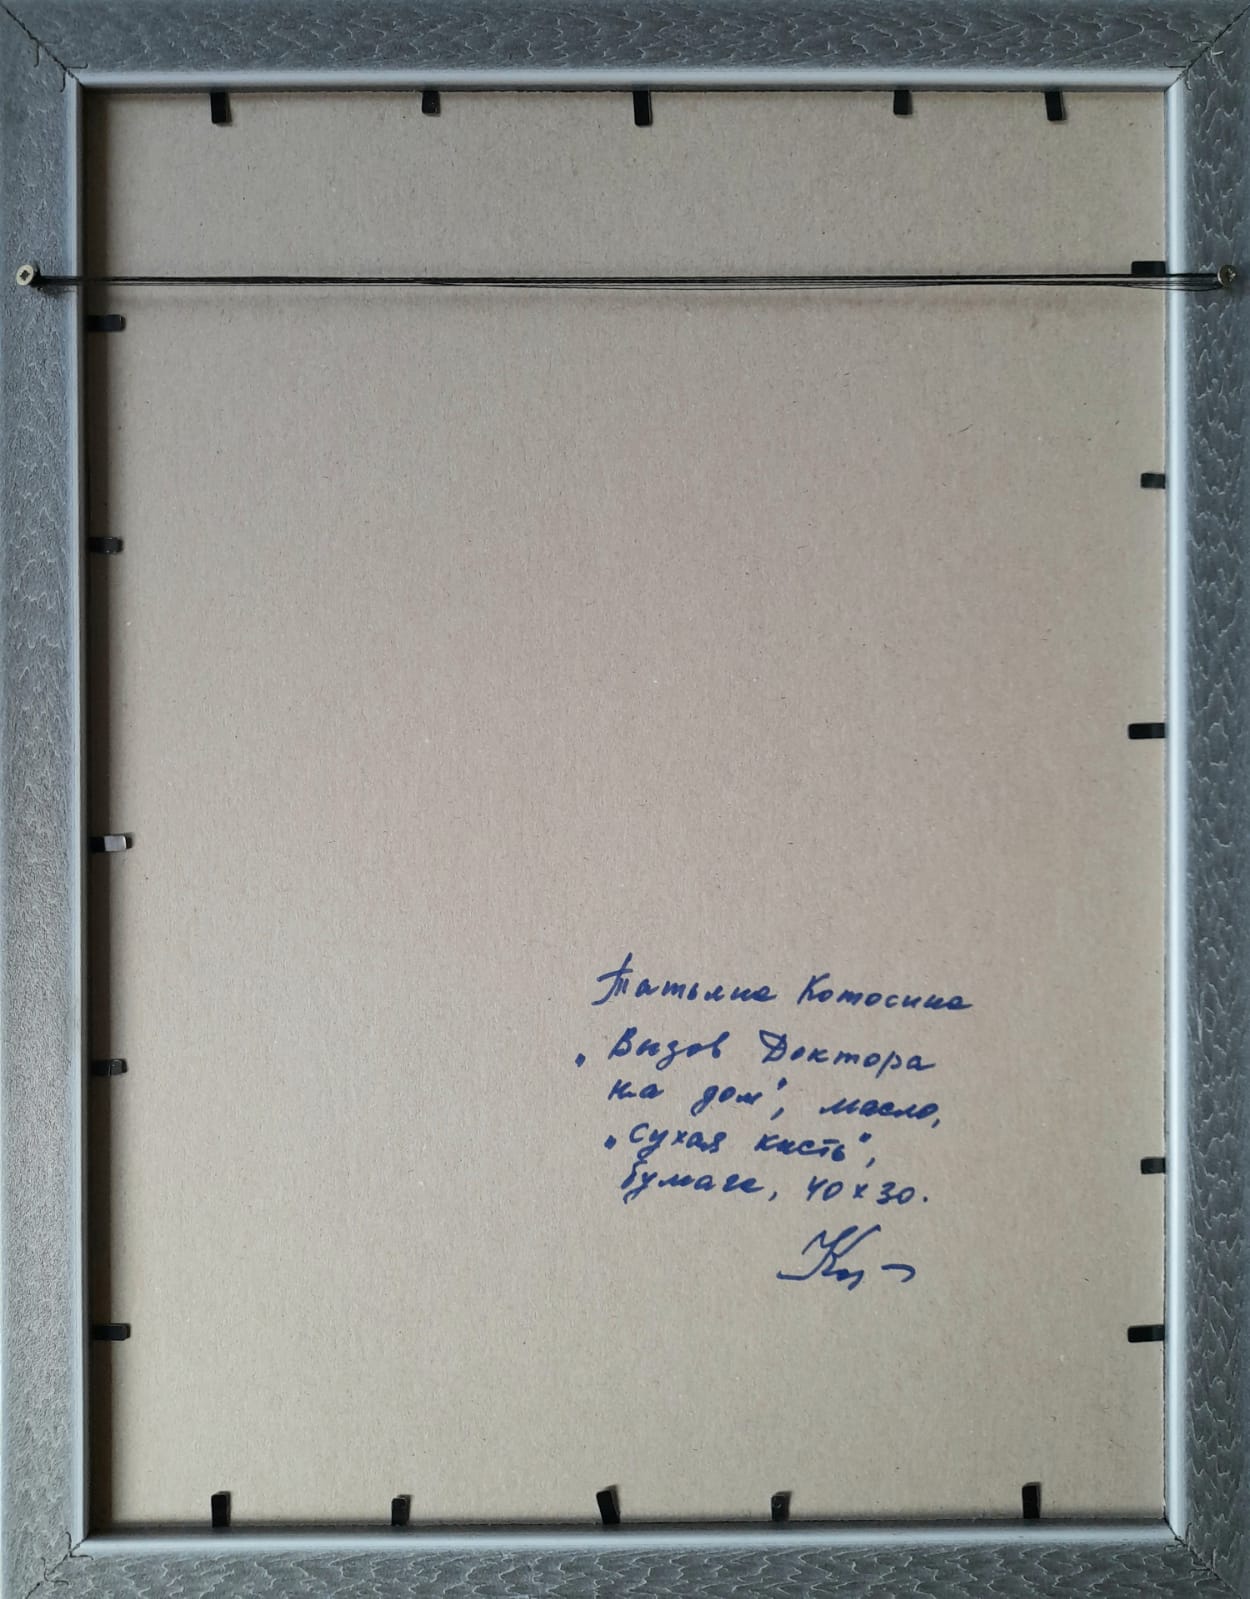 Татьяна Котосина
„Вызов Доктора
на дом", масло,
„сухая кисть",
бумага, 40 х 30.